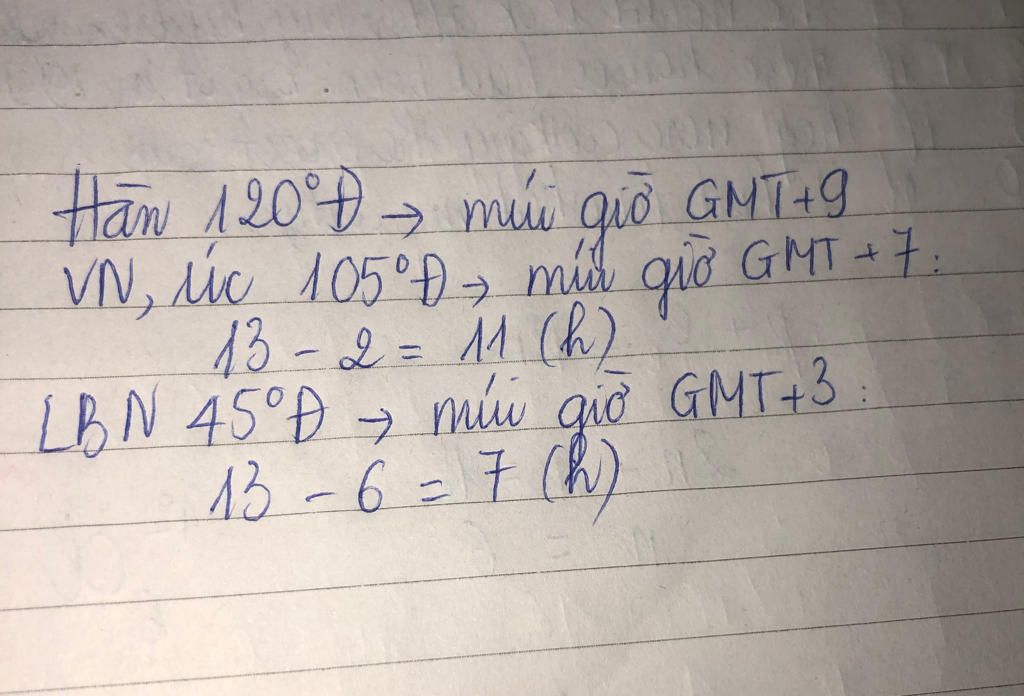 Hàn 120°Đ → múi giờ GMT+9
VN, Úc 105°Đ → múi giờ GMT+7:
13 - 2 = 11 (h)
LBN 45°Đ → múi giờ GMT+3:
13 - 6 = 7 (h)